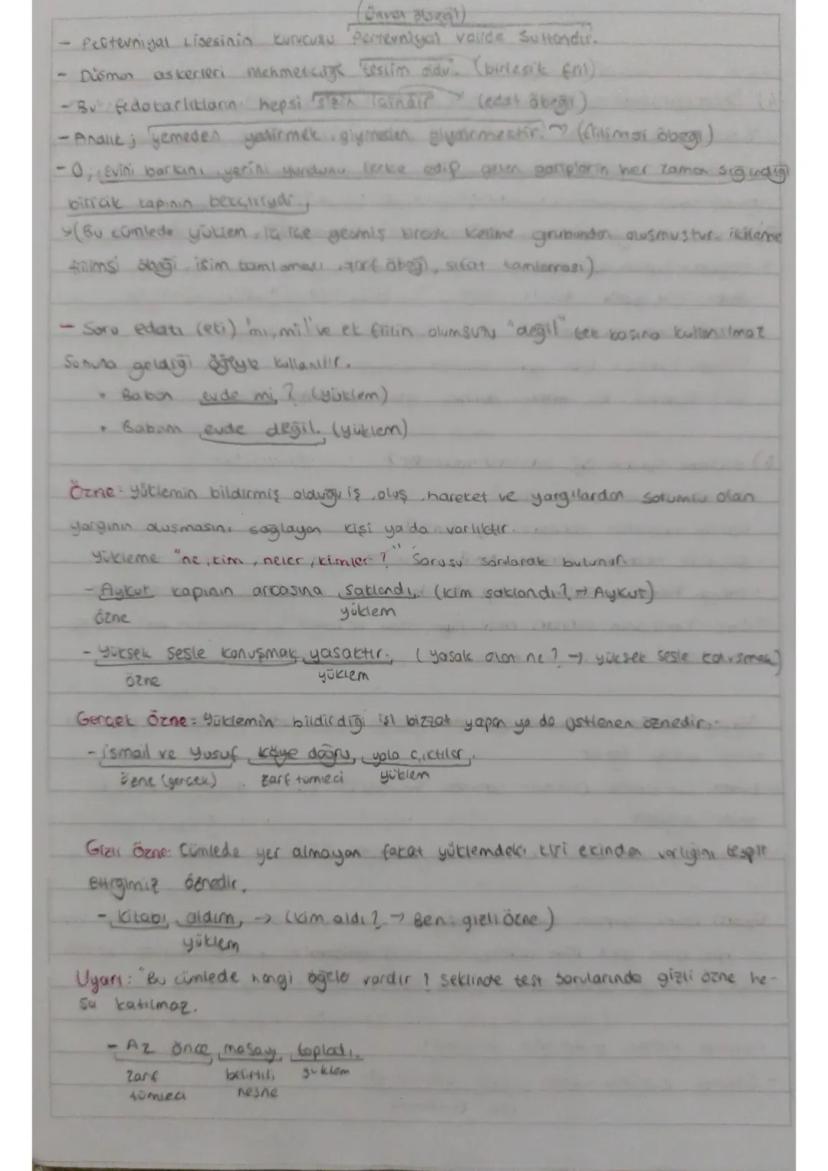 (Ünvan öbeği)
- Pertevniyal Lisesinin kurucusu Pertevniyal Valide Sultandır.
- Düşman askerleri Mehmetçiğe teslim oldu. (birleşik fiil)
- Bu fedakarlıkların hepsi sizin içindir → (edat öbeği)
- Analık; yemeden yedirmek, giymeden giydirmektir. → (fiilimsi öbeği)
- O, evini barkını, yerini yurdunu terke edip gelen gariplerin her zaman sığındığı
biricik kapının bekçisiydi,
↳ (Bu cümlede yüklem, iç içe geçmiş birçok kelime grubundan oluşmuştur. ikileme
fiilimsi öbeği, isim tamlaması, zarf öbeği, sıfat tamlaması)
- Soru edatı (eki) "mı, mi" ve ek fiilin olumsuzu "değil" tek başına kullanılmaz
Sonuna geldiği öğeyle kullanılır.
• Baban evde mi? (yüklem)
• Babam evde değil. (yüklem)
Özne: Yüklemin bildirmiş olduğu iş, oluş, hareket ve yargılardan sorumlu olan
yargının oluşmasını sağlayan kişi ya da varlıktır.
Yükleme "ne, kim, neler, kimler?" Sorusu sorularak bulunur.
- Aykut kapının arkasına saklandı. (kim saklandı? → Aykut)
özne yüklem
- Yüksek sesle konuşmak yasaktır. (yasak olan ne? → yüksek sesle konuşmak)
özne yüklem
Gerçek Özne: Yüklemin bildirdiği işi bizzat yapan ya da üstlenen öznedir.
- İsmail ve Yusuf köye doğru yola çıktılar.
özne (gerçek) zarf tümleci yüklem
Gizli Özne: Cümlede yer almayan fakat yüklemdeki kişi ekinden varlığını tespit
ettiğimiz öznedir.
- Kitabı aldım, → (kim aldı? → Ben: gizli özne)
yüklem
Uyarı: "Bu cümlede hangi öğeler vardır? şeklinde test sorularında gizli özne he-
sa katılmaz.
- Az önce masayı topladı.
zarf belirtili yüklem
tümleci nesne